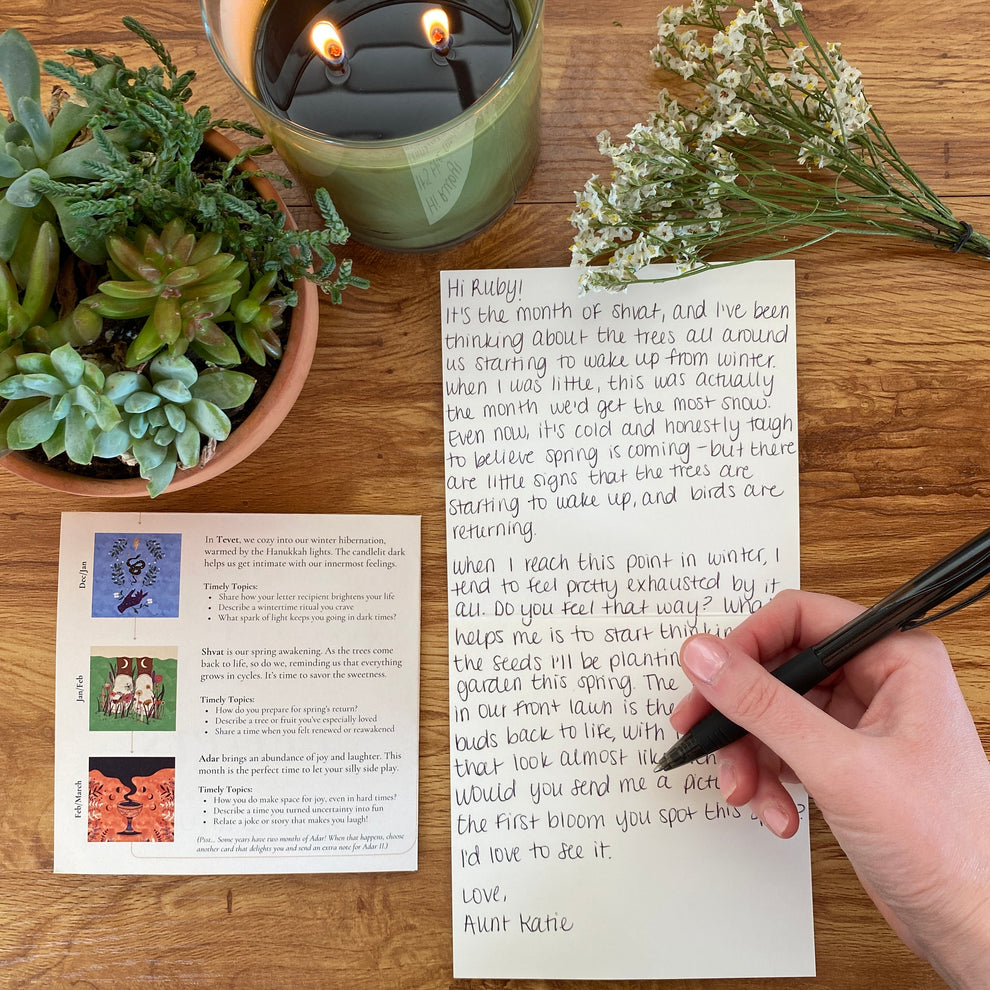 Hi Ruby!
It's the month of Shvat, and I've been
thinking about the trees all around
us starting to wake up from winter.
When I was little, this was actually
the month we'd get the most snow.
Even now, it's cold and honestly tough
to believe spring is coming – but there
are little signs that the trees are
starting to wake up, and birds are
returning.
When I reach this point in winter, I
tend to feel pretty exhausted by it
all. Do you feel that way?
helps me is to start
the seeds I'll be
garden this spring. The
in our front lawn is the
buds back to life, with
that look almost
Would you send me a
the first bloom you spot this
I'd love to see it.
Love,
Aunt Katie
Dec/Jan
In Tevet, we cozy into our winter hibernation,
warmed by the Hanukkah lights. The candlelit dark
helps us get intimate with our innermost feelings.
Timely Topics:
• Share how your letter recipient brightens your life
• Describe a wintertime ritual you crave
• What spark of light keeps you going in dark times?
Jan/Feb
Shvat is our spring awakening. As the trees come
back to life, so do we, reminding us that everything
grows in cycles. It's time to savor the sweetness.
Timely Topics:
• How do you prepare for spring's return?
• Describe a tree or fruit you've especially loved
• Share a time when you felt renewed or reawakened
Feb/March
Adar brings an abundance of joy and laughter. This
month is the perfect time to let your silly side play.
Timely Topics:
• How do you make space for joy, even in hard times?
• Describe a time you turned uncertainty into fun
• Relate a joke or story that makes you laugh!
(Psst... Some years have two months of Adar! When that happens, choose
another card that delights you and send an extra note for Adar II.)